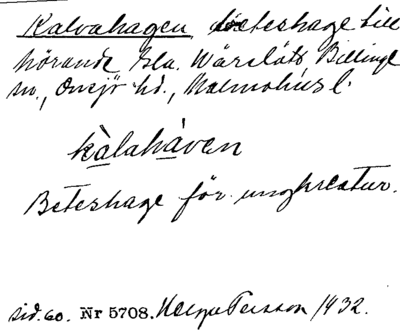 Kalvahagen, beteshage till
hörande Gla. Wärslöts, Billinge
sn., Onsjö hd., Malmöhus l.
kàlahàven
Beteshage för ungkreatur.
sid. 60. Nr 5708. Helge Persson 1932.